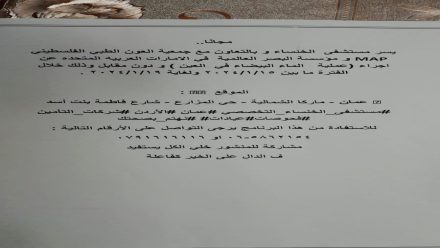 مجانا..
يسر مستشفى الخنساء و بالتعاون مع جمعية العون الطبي الفلسطيني
MAP و مؤسسة البصر العالمية في الامارات العربيه المتحده عن
اجراء (عملية الماء البيضاء في العين) و دون مقابل وذلك خلال
الفترة ما بين ٢٠٢٤/١/١٥ ولغاية ٢٠٢٤/١/١٩.
الموقع :
عمان - ماركا الشمالية - حي المزارع - شارع فاطمة بنت أسد
#مستشفى_الخنساء_التخصصي #عمان #الأردن #شركات_التامين
#فحوصات #عيادات #نهتم_بصحتك
للاستفادة من هذا البرنامج يرجى التواصل على الأرقام التالية :
٠٦-٥٨٦٢١٥٤ او ٠٧٩١٦١٦١١٦
مشاركة للمنشور خلي الكل يستفيد
ف الدال على الخير كفاعلة